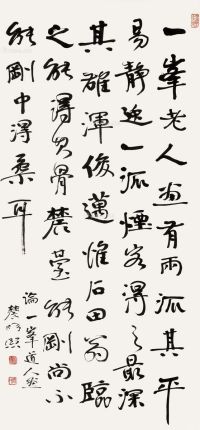 一峯老人畫有兩派其平
易靜逸一派煙客得之最深
其雄渾俊邁惟石田翁臨
之能得其骨麓臺能剛尚不
能剛中得柔耳
論一峯道人畫